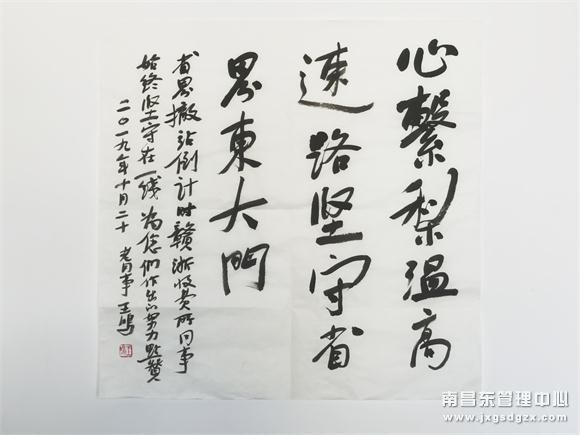 心繫梨温高
速路坚守省
界東大門
省界撤站倒计时赣浙收费所同事
始终坚守在一线为您们作出的努力點赞
二〇一九年十月二十 老同事 王鸣
南昌东管理中心
www.jxgsdgzx.com